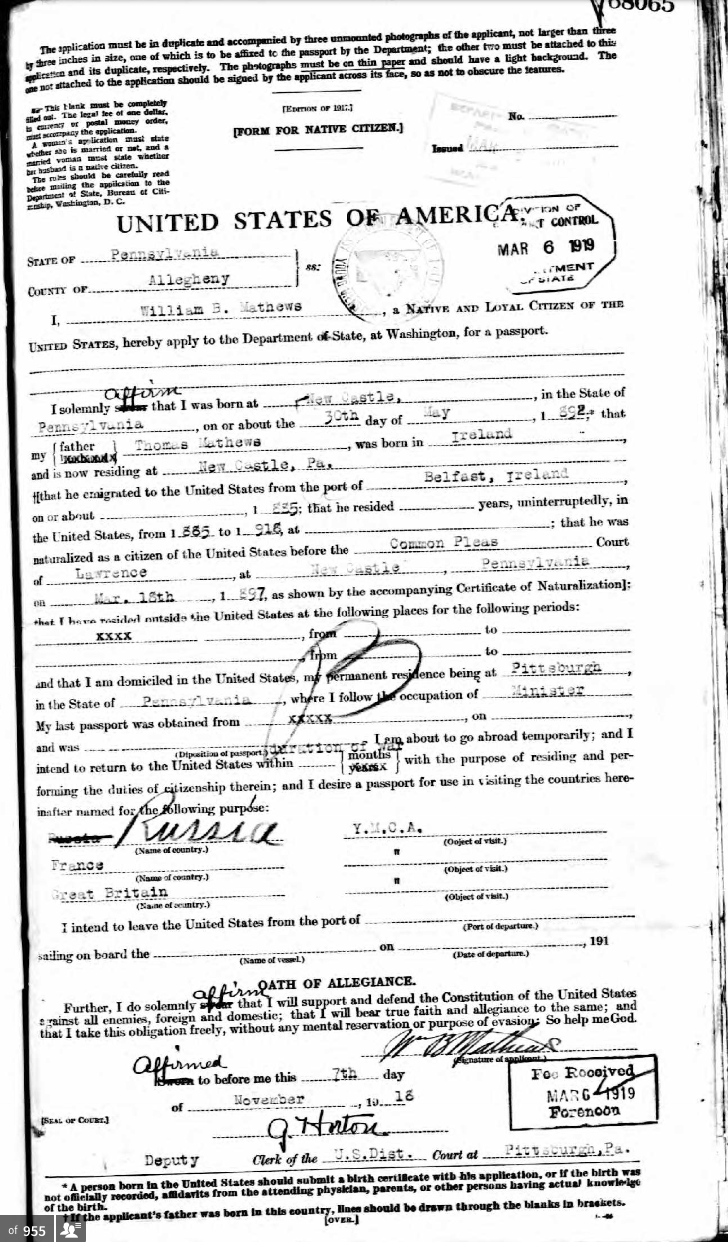 68065
The application must be in duplicate and accompanied by three unmounted photographs of the applicant, not larger than three
by three inches in size, one of which is to be affixed to the passport by the Department; the other two must be attached to this
application and its duplicate, respectively. The photographs must be on thin paper and should have a light background. The
one not attached to the application should be signed by the applicant across its face, so as not to obscure the features.
This blank must be completely
filled out. The legal fee of one dollar,
in currency or postal money order,
must accompany the application.
A woman's application must state
whether she is married or not, and a
married woman must state whether
her husband is a native citizen.
The rules should be carefully read
before mailing the application to the
Department of State, Bureau of Citi-
zenship, Washington, D. C.
[EDITION OF 1917.]
[FORM FOR NATIVE CITIZEN.]
No.
Issued
UNITED STATES OF AMERICA.
CONTROL
MAR 6 1919
STATE OF Pennsylvania
COUNTY OF Allegheny
ss:
I, William B. Mathews, a NATIVE AND LOYAL CITIZEN OF THE
UNITED STATES, hereby apply to the Department of State, at Washington, for a passport.
affirm
I solemnly swear that I was born at New Castle, in the State of
Pennsylvania, on or about the 30th day of May, 1 892,* that
my { father husband } Thomas Mathews, was born in Ireland,
and is now residing at New Castle, Pa.
†[that he emigrated to the United States from the port of Belfast, Ireland
on or about 1 885; that he resided years, uninterruptedly, in
the United States, from 1 885 to 1 918, at ; that he was
naturalized as a citizen of the United States before the Common Pleas Court
of Lawrence, at New Castle, Pennsylvania,
on Mar. 18th, 1 897, as shown by the accompanying Certificate of Naturalization];
that I have resided outside the United States at the following places for the following periods:
xxxx, from to
, from to
and that I am domiciled in the United States, my permanent residence being at Pittsburgh,
in the State of Pennsylvania, where I follow the occupation of Minister
My last passport was obtained from xxxxx, on ,
and was I am about to go abroad temporarily; and I
(Disposition of passport.) duration of war
intend to return to the United States within { months years } with the purpose of residing and per-
forming the duties of citizenship therein; and I desire a passport for use in visiting the countries here-
inafter named for the following purpose:
Russia Russia Y.M.C.A.
(Name of country.) (Object of visit.)
France "
(Name of country.) (Object of visit.)
Great Britain "
(Name of country.) (Object of visit.)
I intend to leave the United States from the port of
(Port of departure.)
sailing on board the on , 191
(Name of vessel.) (Date of departure.)
OATH OF ALLEGIANCE.
affirm
Further, I do solemnly swear that I will support and defend the Constitution of the United States
against all enemies, foreign and domestic; that I will bear true faith and allegiance to the same; and
that I take this obligation freely, without any mental reservation or purpose of evasion: So help me God.
Wm B Mathews
(Signature of applicant.)
Affirmed
Sworn to before me this 7th day
of November, 19 18
Fee Received
MAR 6 1919
Forenoon
[SEAL OF COURT.]
G Horton
Deputy Clerk of the U.S.Dist. Court at Pittsburgh, Pa.
* A person born in the United States should submit a birth certificate with his application, or if the birth was
not officially recorded, affidavits from the attending physician, parents, or other persons having actual knowledge
of the birth.
† If the applicant's father was born in this country, lines should be drawn through the blanks in brackets.
[OVER.]
of 955